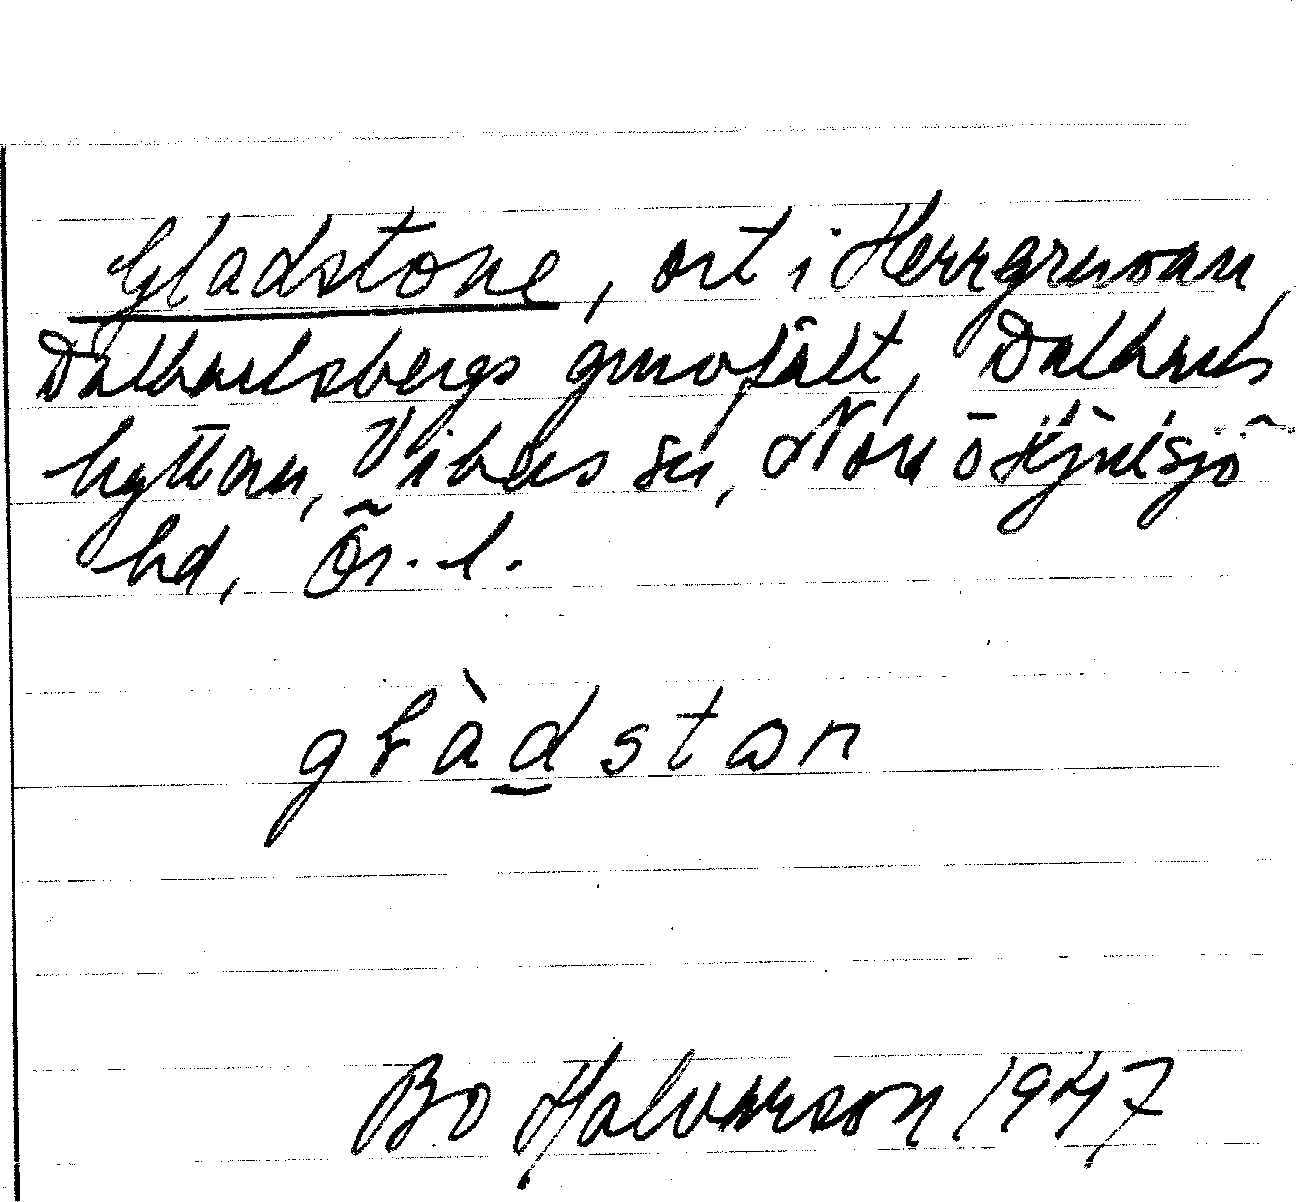 Gladstone, ort i Herrgruvan,
Dalkarlsbergs gruvfält, Dalkarls
hyttan, Vikers sn, Nora o Hjulsjö
hd, Ör. l.
glàdstan
Bo Halvarson 1947